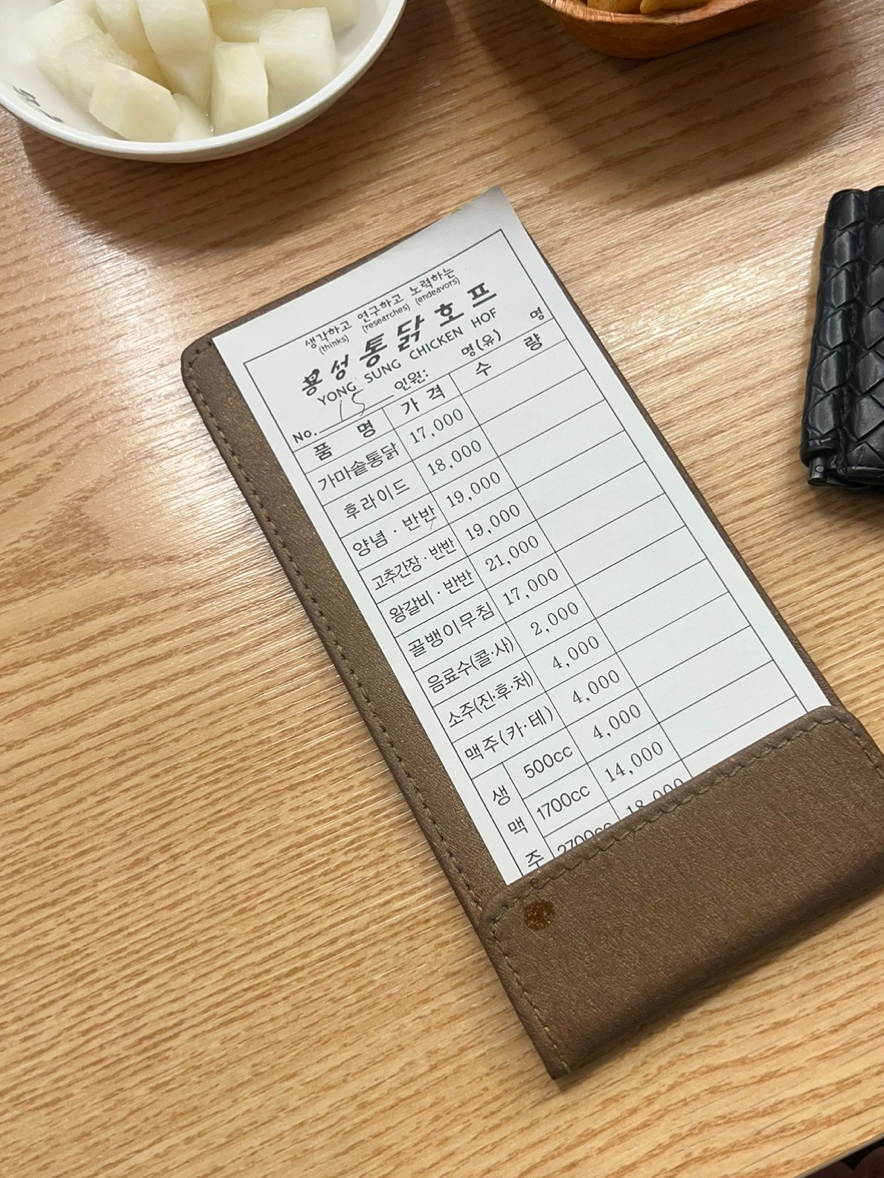 생각하고 연구하고 노력하는
(thinks) (researches) (endeavors)
용성통닭호프
YONG SUNG CHICKEN HOF
No. 15 인원: 명(유) 명
품 명 가 격 수 량
가마솥통닭 17,000
후라이드 18,000
양념·반반 19,000
고추간장·반반 19,000
왕갈비·반반 21,000
골뱅이무침 17,000
음료수(콜·사) 2,000
소주(진·후·처) 4,000
맥주(카·테) 4,000
생맥주 500cc 4,000
1700cc 14,000
2700cc 18,000